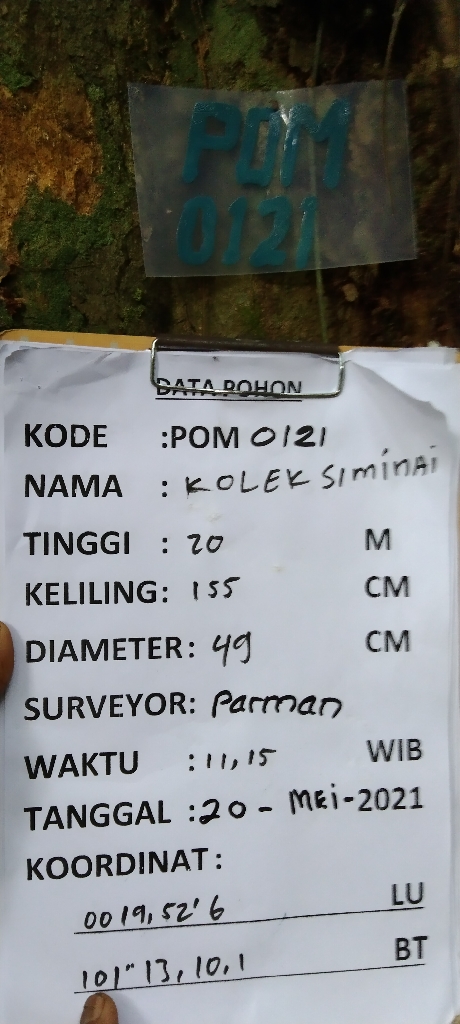 POM
0121
DATA POHON
KODE :POM 0121
NAMA : KOLEK SIMINAI
TINGGI : 20 M
KELILING: 155 CM
DIAMETER: 49 CM
SURVEYOR: Parman
WAKTU :11,15 WIB
TANGGAL :20 - MEi-2021
KOORDINAT:
0019,52'6 LU
101" 13, 10,1 BT